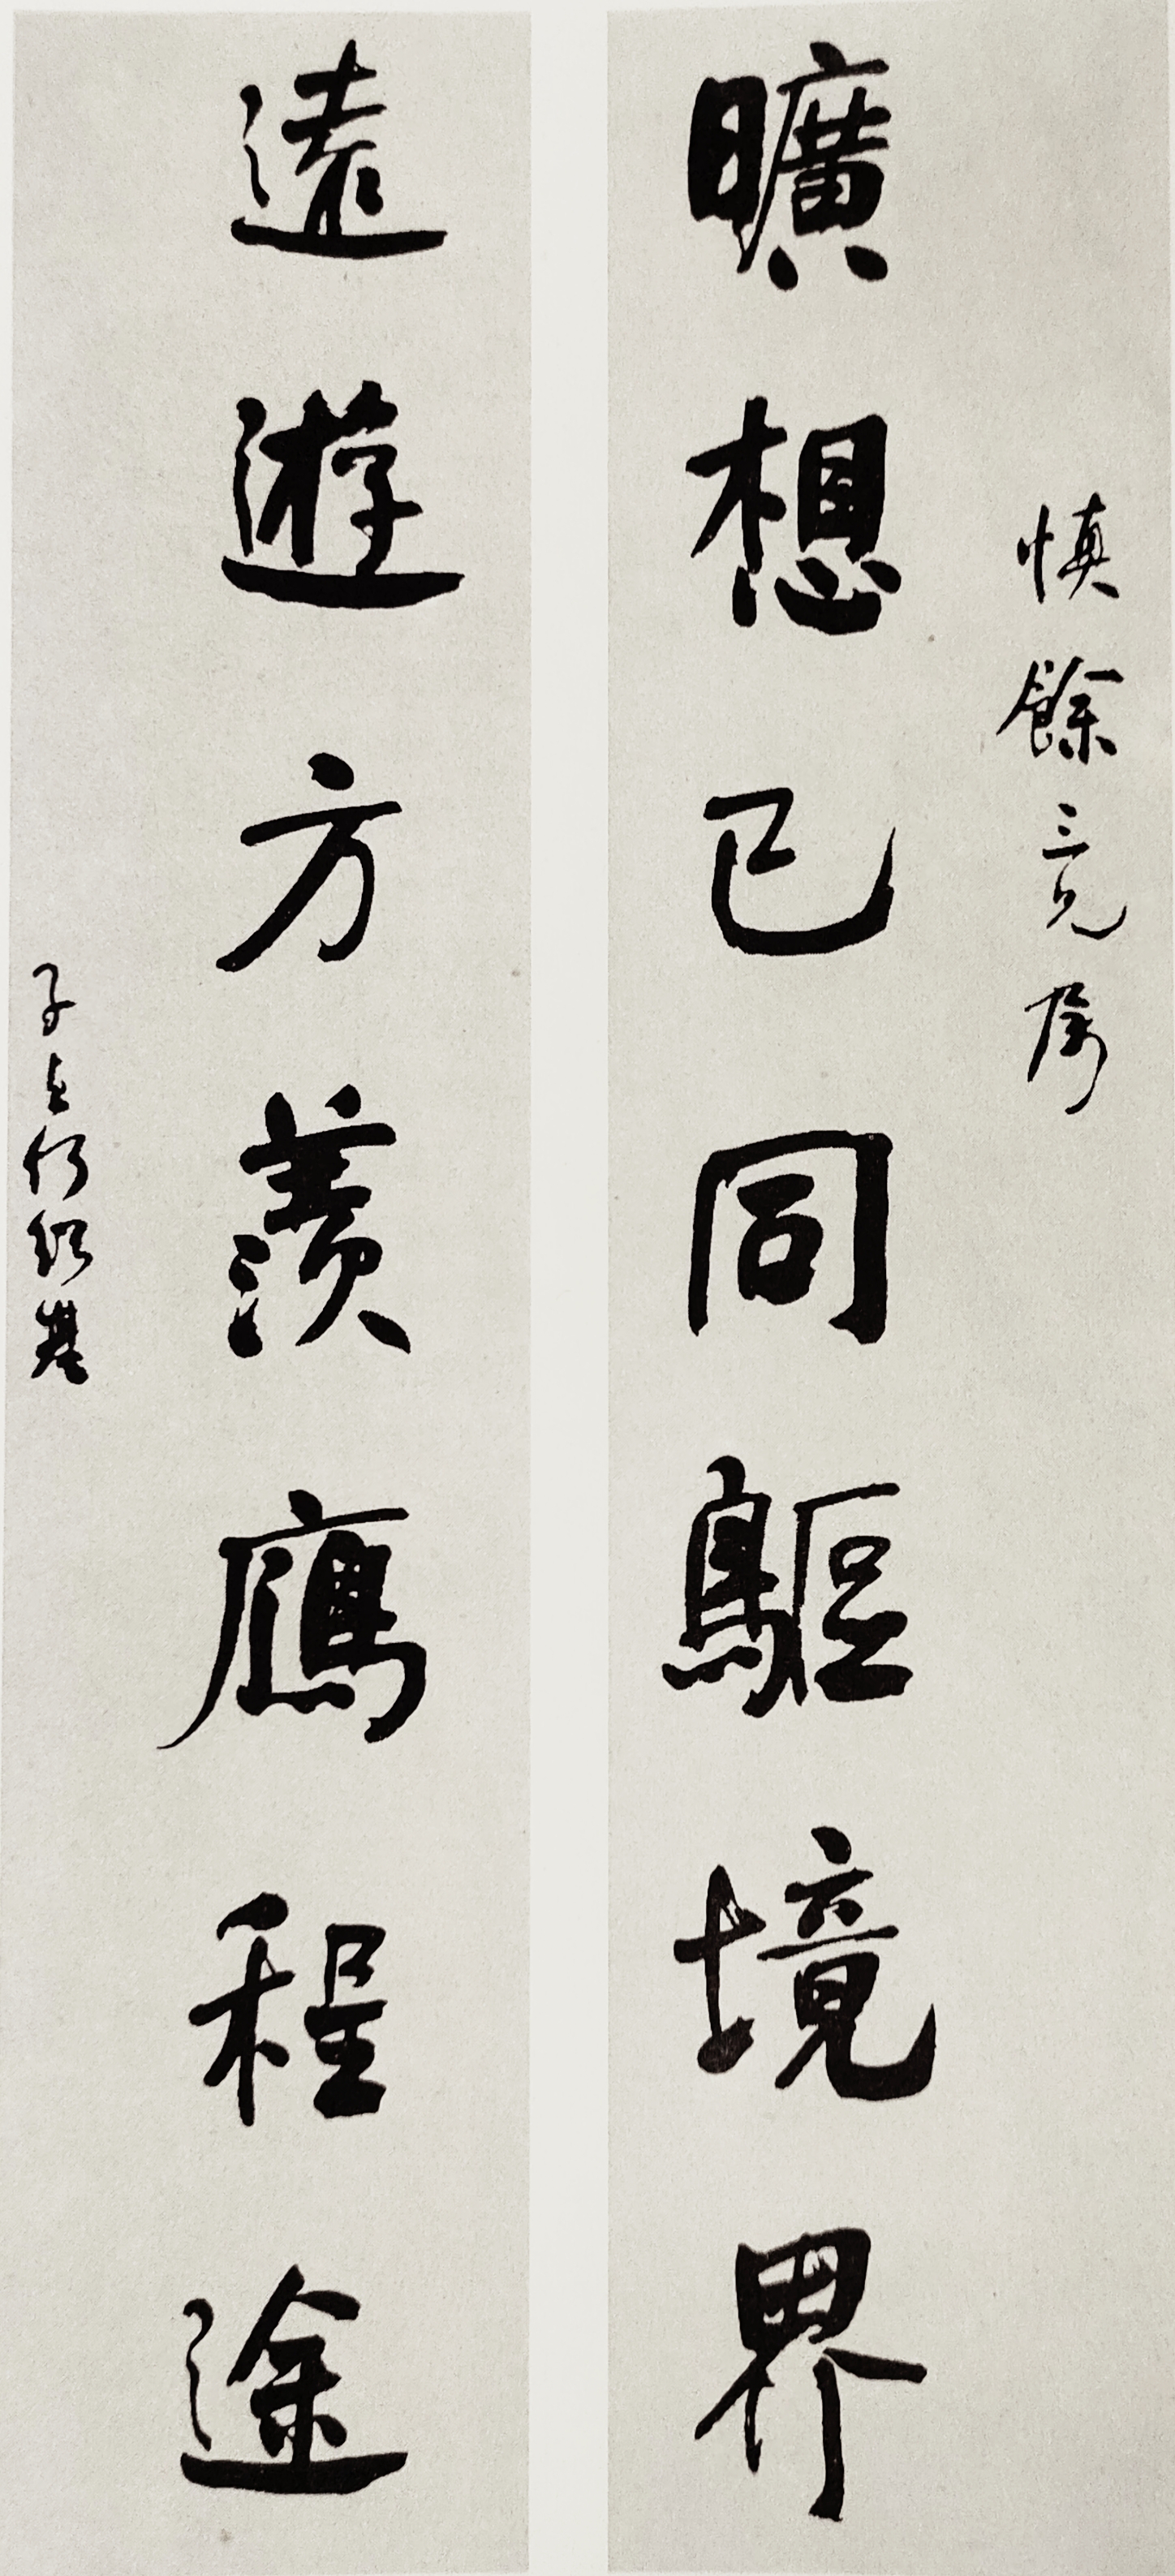 慎餘三兄屬
曠想已同驅境界
遠遊方羨鷹程途
子貞何紹基